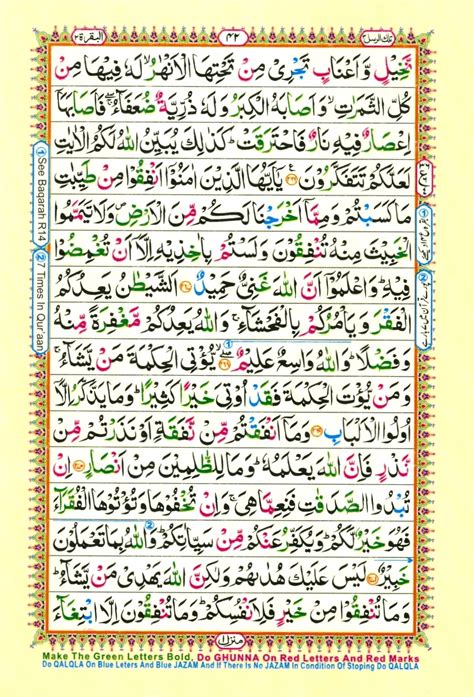 تلك الرسل ٣ ٤٢ البقرة ٢
نَّخِيْلٍ وَّاَعْنَابٍ تَجْرِىْ مِنْ تَحْتِهَا الْاَنْهٰرُ ۙ لَهٗ فِيْهَا مِنْ
كُلِّ الثَّمَرٰتِ ۙ وَاَصَابَهُ الْكِبَرُ وَلَهٗ ذُرِّيَّةٌ ضُعَفَآءُ ۖ فَاَصَابَهَاۤ
اِعْصَارٌ فِيْهِ نَارٌ فَاحْتَرَقَتْ ؕ كَذٰلِكَ يُبَيِّنُ اللّٰهُ لَكُمُ الْاٰيٰتِ
لَعَلَّكُمْ تَتَفَكَّرُوْنَ ﴿٢٦٦﴾ يٰۤاَيُّهَا الَّذِيْنَ اٰمَنُوْۤا اَنْفِقُوْا مِنْ طَيِّبٰتِ
مَا كَسَبْتُمْ وَمِمَّاۤ اَخْرَجْنَا لَكُمْ مِّنَ الْاَرْضِ ۪ وَلَا تَيَمَّمُوا
الْخَبِيْثَ مِنْهُ تُنْفِقُوْنَ وَلَسْتُمْ بِاٰخِذِيْهِ اِلَّاۤ اَنْ تُغْمِضُوْا
فِيْهِ ؕ وَاعْلَمُوْۤا اَنَّ اللّٰهَ غَنِىٌّ حَمِيْدٌ ﴿٢٦٧﴾ اَلشَّيْطٰنُ يَعِدُكُمُ
الْفَقْرَ وَيَاْمُرُكُمْ بِالْفَحْشَآءِ ۚ وَاللّٰهُ يَعِدُكُمْ مَّغْفِرَةً مِّنْهُ
وَفَضْلًا ؕ وَاللّٰهُ وَاسِعٌ عَلِيْمٌ ﴿٢٦٨﴾ يُّؤْتِى الْحِكْمَةَ مَنْ يَّشَآءُ ۚ
وَمَنْ يُّؤْتَ الْحِكْمَةَ فَقَدْ اُوْتِىَ خَيْرًا كَثِيْرًا ؕ وَمَا يَذَّكَّرُ اِلَّاۤ
اُولُوا الْاَلْبَابِ ﴿٢٦٩﴾ وَمَاۤ اَنْفَقْتُمْ مِّنْ نَّفَقَةٍ اَوْ نَذَرْتُمْ مِّنْ
نَّذْرٍ فَاِنَّ اللّٰهَ يَعْلَمُهٗ ؕ وَمَا لِلظّٰلِمِيْنَ مِنْ اَنْصَارٍ ﴿٢٧٠﴾ اِنْ
تُبْدُوا الصَّدَقٰتِ فَنِعِمَّا هِىَ ۚ وَاِنْ تُخْفُوْهَا وَتُؤْتُوْهَا الْفُقَرَآءَ
فَهُوَ خَيْرٌ لَّكُمْ ؕ وَيُكَفِّرُ عَنْكُمْ مِّنْ سَيِّاٰتِكُمْ ؕ وَاللّٰهُ بِمَا تَعْمَلُوْنَ
خَبِيْرٌ ﴿٢٧١﴾ لَيْسَ عَلَيْكَ هُدٰٮهُمْ وَلٰـكِنَّ اللّٰهَ يَهْدِىْ مَنْ يَّشَآءُ ؕ
وَمَا تُنْفِقُوْا مِنْ خَيْرٍ فَلِاَنْفُسِكُمْ ؕ وَمَا تُنْفِقُوْنَ اِلَّا ابْتِغَآءَ
منزل ١
① See Baqarah R14 ② 7 Times In Qur'aan
Make The Green Letters Bold, Do GHUNNA On Red Letters And Red Marks
Do QALQLA On Blue Leters And Blue JAZAM And If There Is No JAZAM In Condition Of Stoping Do QALQLA